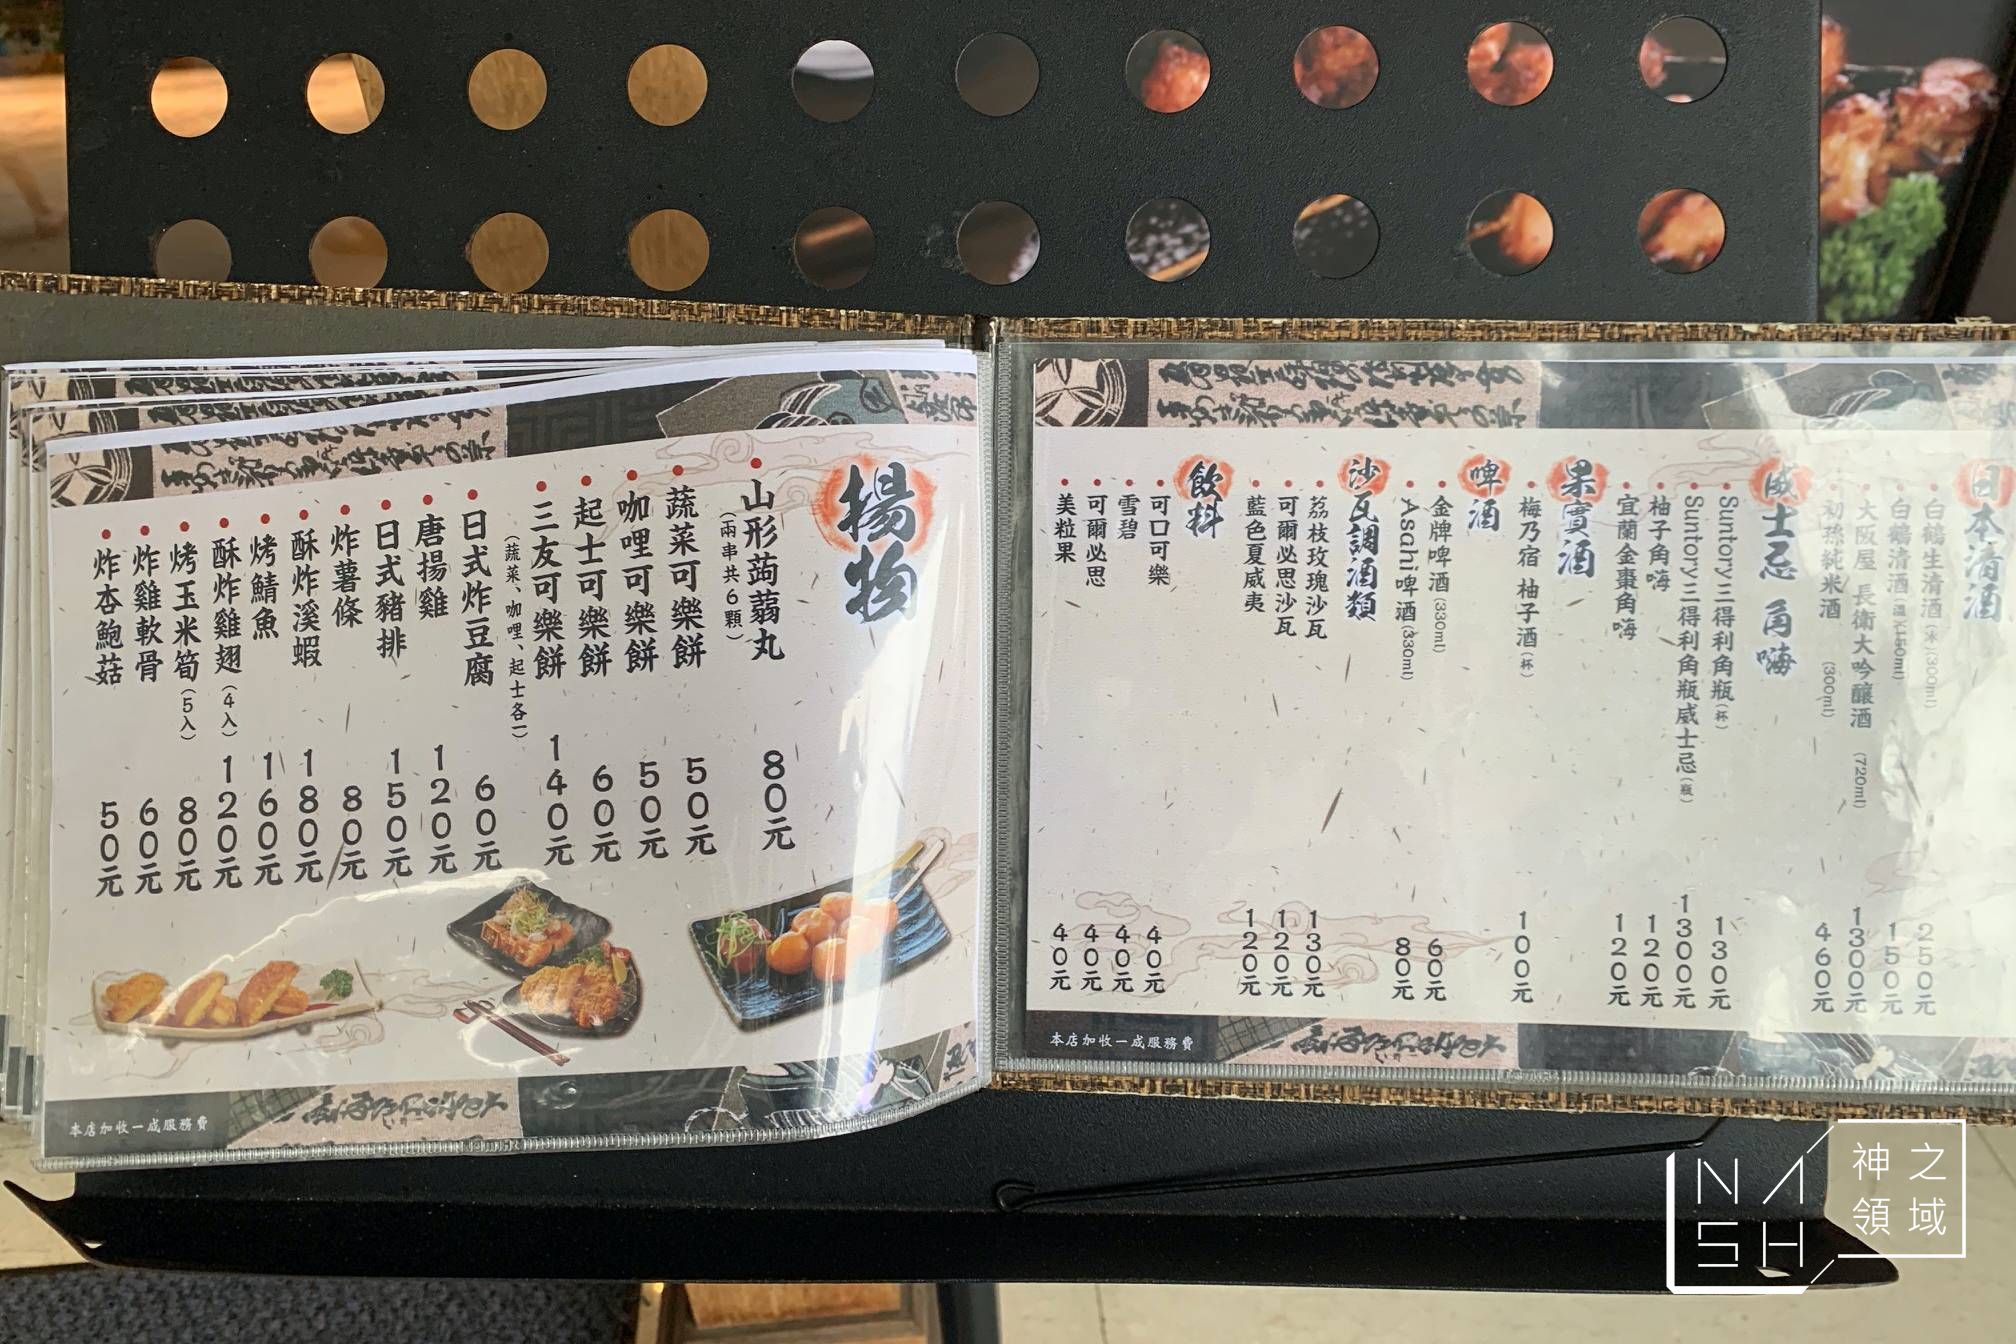 揚物
山形蒟蒻丸 80元
(兩串共6顆)
蔬菜可樂餅 50元
咖哩可樂餅 50元
起士可樂餅 60元
三友可樂餅 140元
(蔬菜、咖哩、起士各一)
日式炸豆腐 60元
唐揚雞 120元
日式豬排 150元
炸薯條 80元
酥炸溪蝦 180元
烤鯖魚 160元
酥炸雞翅(4入) 120元
烤玉米筍(5入) 80元
炸雞軟骨 60元
炸杏鮑菇 50元
本店加收一成服務費
日本清酒
白鶴生清酒 (300ml) 250元
白鶴清酒 150元
大阪屋 長衛大吟釀酒 (720ml) 1300元
初孫純米酒 (300ml) 460元
威士忌 角嗨
Suntory三得利角瓶(杯) 130元
Suntory三得利角瓶威士忌(瓶) 1300元
柚子角嗨 120元
宜蘭金棗角嗨 120元
果實酒
梅乃宿 柚子酒(杯) 100元
啤酒
金牌啤酒(330ml) 60元
Asahi啤酒(330ml) 80元
沙瓦調酒類
荔枝玫瑰沙瓦 130元
可爾必思沙瓦 120元
藍色夏威夷 120元
飲料
可口可樂 40元
雪碧 40元
可爾必思 40元
美粒果 40元
本店加收一成服務費
NASH
神之領域